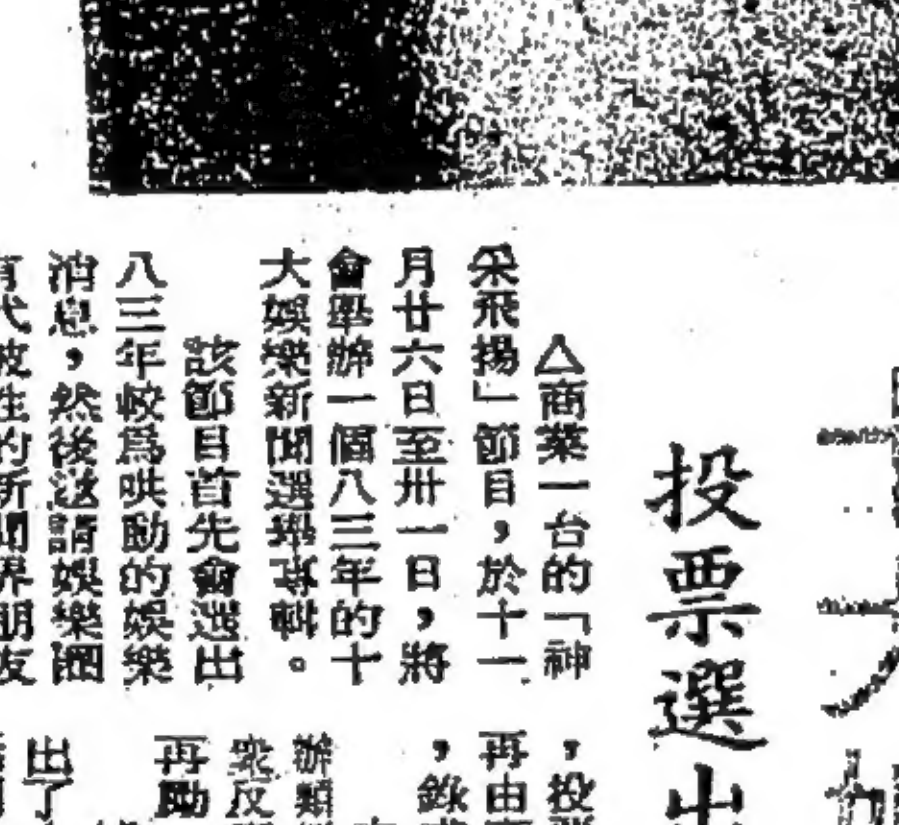 投票選出
△商業一台的「神
采飛揚」節目，於十一
月廿六日至卅一日，將
會舉辦一個八三年的十
大娛樂新聞選舉專輯。
該節目首先會選出
八三年較爲哄動的娛樂
消息，然後邀請娛樂圈
有代被性的新聞界朋友
，投
再由
，錄
辦類
衆反
再勵
出了